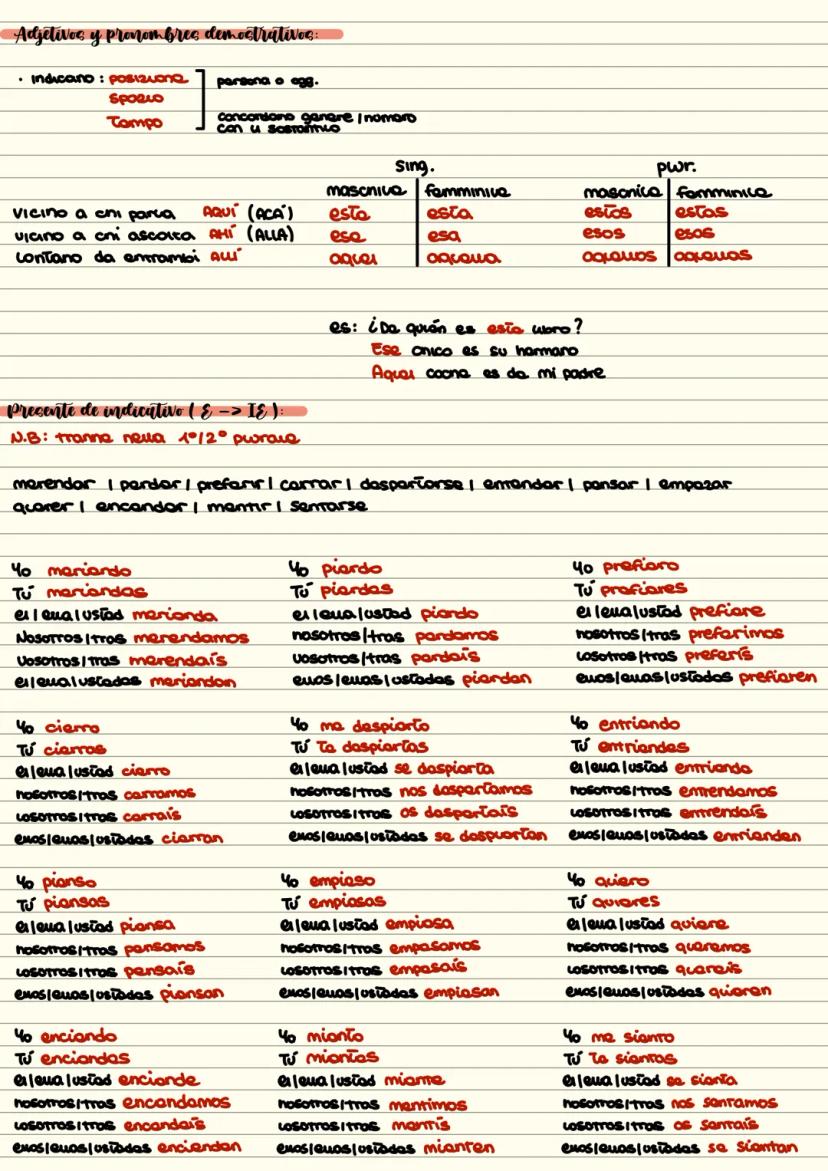 Adjetivos y pronombres demostrativos:
· indicano: posizione
spazio
tempo
persona o ogg.
concordano genere / numero
con il sostantivo
sing. plur.
maschile femminile maschile femminile
vicino a chi parla AQUÍ (ACÁ) este esta estos estas
vicino a chi ascolta AHÍ (ALLA) ese esa esos esas
lontano da entrambi ALLÍ aquel aquella aquellos aquellas
es: ¿De quién es este libro?
Ese chico es su hermano
Aquel coche es de mi padre
Presente de indicativo (E -> IE):
N.B: tranne nella 1°/2° plurale
merendar | perder | preferir | cerrar | despertarse | entender | pensar | empezar
querer | encender | mentir | sentarse
Yo meriendo Yo pierdo Yo prefiero
Tú meriendas Tú pierdes Tú prefieres
el|ella|usted merienda el|ella|usted pierde el|ella|usted prefiere
Nosotros|tras merendamos nosotros|tras perdemos nosotros|tras preferimos
Vosotros|tras merendaís vosotros|tras perdeís vosotros|tras preferís
el|ella|ustedes meriendan ellos|ellas|ustedes pierden ellos|ellas|ustedes prefieren
Yo cierro Yo me despierto Yo entriendo
Tú cierras Tú te despiertas Tú entriendes
el|ella|usted cierra el|ella|usted se despierta el|ella|usted entriende
nosotros|tras cerramos nosotros|tras nos despertamos nosotros|tras entrendemos
vosotros|tras cerraís vosotros|tras os despertaís vosotros|tras entrendeís
ellos|ellas|ustedes cierran ellos|ellas|ustedes se despiertan ellos|ellas|ustedes entrienden
Yo pienso Yo empieso Yo quiero
Tú piensas Tú empiesas Tú quieres
el|ella|usted piensa el|ella|usted empiesa el|ella|usted quiere
nosotros|tras pensamos nosotros|tras empesamos nosotros|tras queremos
vosotros|tras pensaís vosotros|tras empesaís vosotros|tras quereis
ellos|ellas|ustedes piensan ellos|ellas|ustedes empiesan ellos|ellas|ustedes quieren
Yo enciendo Yo miento Yo me siento
Tú enciendes Tú mientes Tú te sientas
el|ella|usted enciende el|ella|usted miente el|ella|usted se sienta
nosotros|tras encendemos nosotros|tras mentimos nosotros|tras nos sentamos
vosotros|tras encendeís vosotros|tras mentís vosotros|tras os sentaís
ellos|ellas|ustedes encienden ellos|ellas|ustedes mienten ellos|ellas|ustedes se sientan